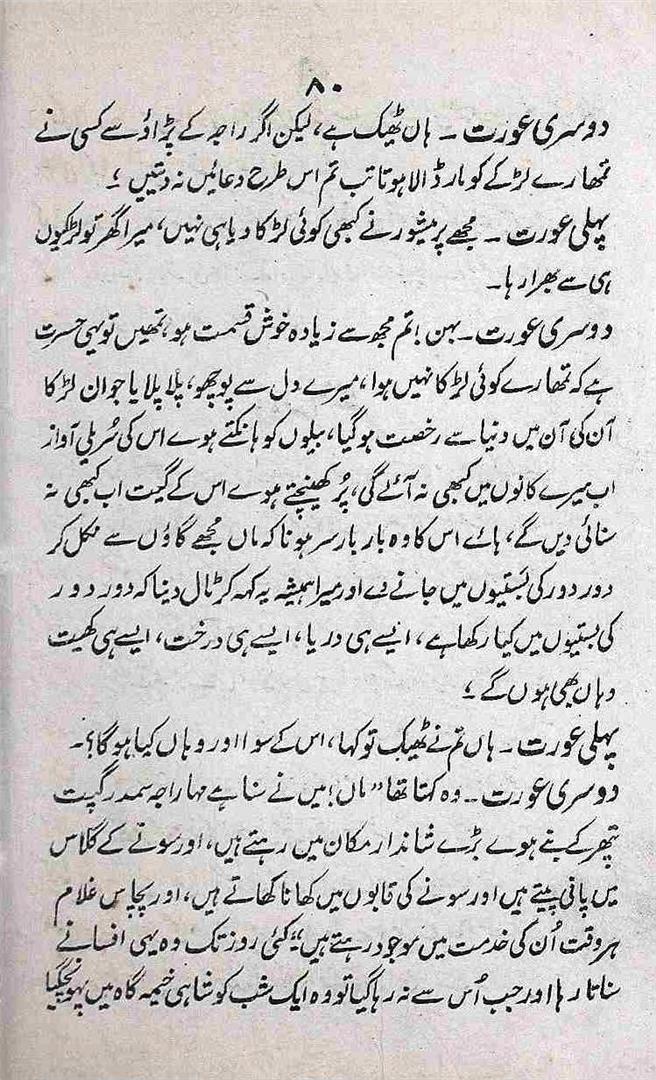 ۸۰
دوسری عورت ۔ ہاں ٹھیک ہے، لیکن اگر راجہ کے پڑاؤ سے کسی نے
تمھارے لڑکے کو مار ڈالا ہوتا تب تم اس طرح دعائیں نہ دیتیں ؛
پہلی عورت ۔ مجھے پرمیشور نے کبھی کوئی لڑکا دیا ہی نہیں، میرا گھر تو لڑکیوں
ہی سے بھرا رہا ۔
دوسری عورت ۔ بہن! تم مجھ سے زیادہ خوش قسمت ہو، تمھیں تو یہی حسرت
ہے کہ تمھارے کوئی لڑکا نہیں ہوا، میرے دل سے پوچھو، پلا پلایا جوان لڑکا
آن کی آن میں دنیا سے رخصت ہو گیا، بیلوں کو ہانکتے ہوے اس کی سُریلی آواز
اب میرے کانوں میں کبھی نہ آئے گی، پُر کھینچتے ہوے اس کے گیت اب کبھی نہ
سنائی دیں گے، ہاے اس کا وہ بار بار سر ہونا کہ ماں مجھے گاؤں سے نکل کر
دور دور کی بستیوں میں جانے دے اور میرا ہمیشہ یہ کہہ کر ٹال دینا کہ دور دور
کی بستیوں میں کیا رکھا ہے، ایسے ہی دریا، ایسے ہی درخت، ایسے ہی کھیت
وہاں بھی ہوں گے ؛
پہلی عورت ۔ ہاں تم نے ٹھیک تو کہا، اس کے سوا اور وہاں کیا ہوگا؟ ۔
دوسری عورت ۔ وہ کہتا تھا ”ماں! میں نے سنا ہے مہاراجہ سمدر گپت
پتھر کے بنے ہوے بڑے شاندار مکان میں رہتے ہیں، اور سونے کے گلاس
میں پانی پیتے ہیں اور سونے کی قابوں میں کھانا کھاتے ہیں، اور پچاس غلام
ہر وقت اُن کی خدمت میں موجود رہتے ہیں“؛ کئی روز تک وہ یہی افسانے
سناتا رہا اور جب اُس سے نہ رہا گیا تو وہ ایک شب کو شاہی خیمہ گاہ میں پہونچ گیا